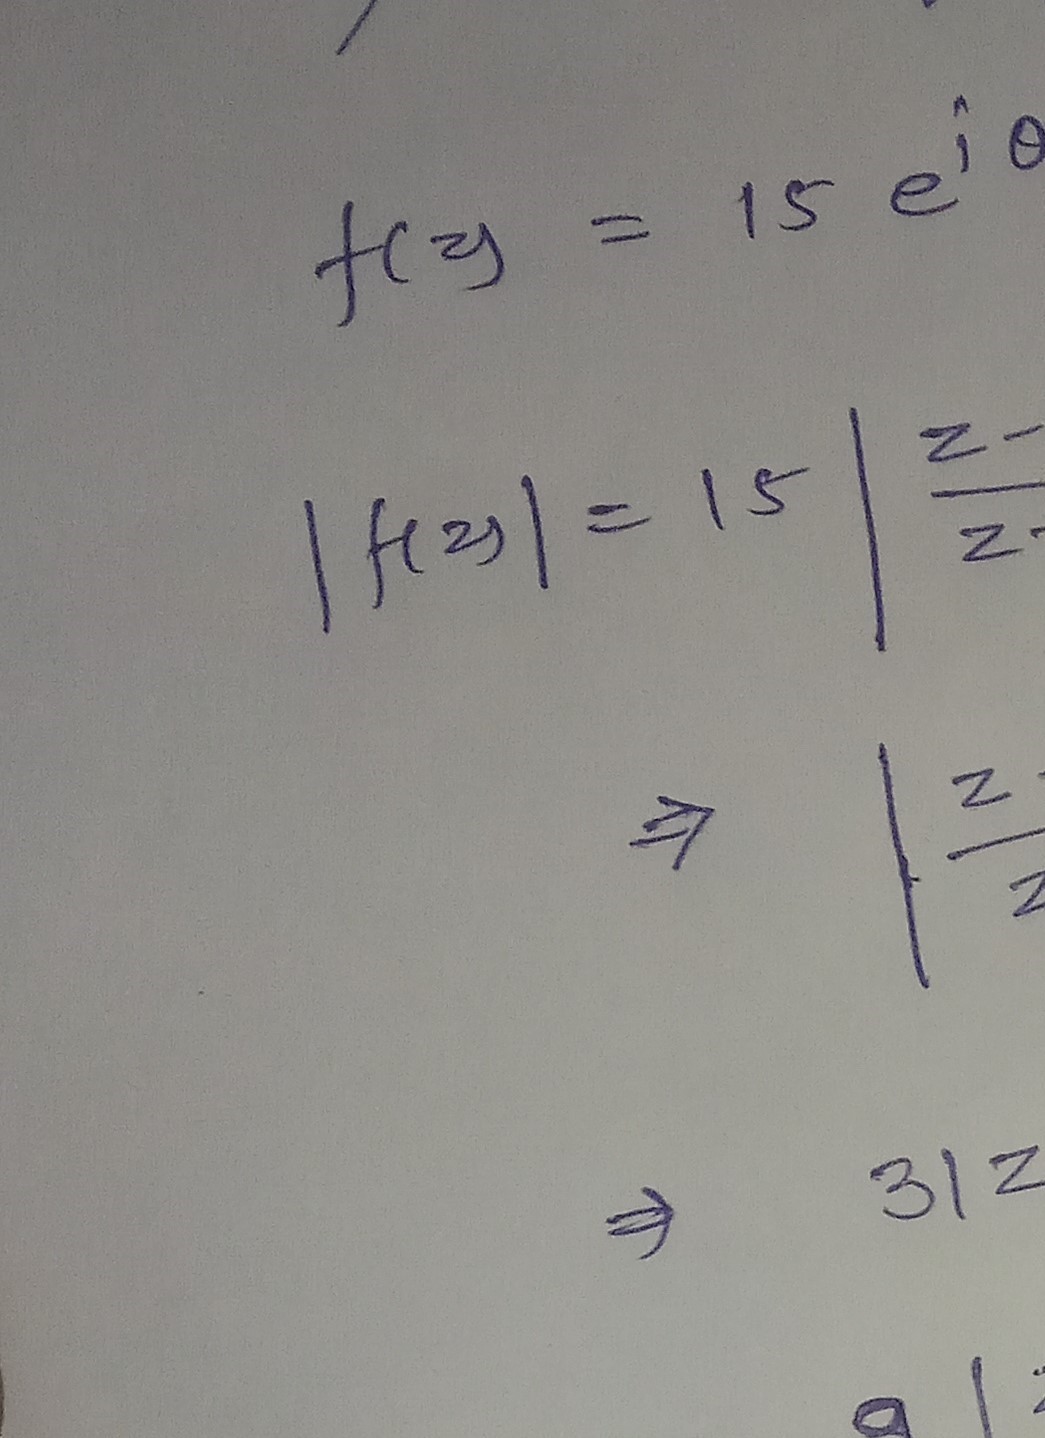 f(z) = 15 e^{iθ}
|f(z)| = 15 | \frac{z-}{z-}
⇒ | \frac{z-}{z}
⇒ 3|z
9|z